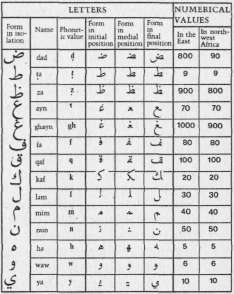 LETTERS NUMERICAL VALUES
Form in iso-lation Name Phonet-ic value Form in initial position Form in medial position Form in final position In the East In north-west Africa
ض dad ḍ ضـ ـضـ ـض 800 90
ط ṭa ṭ ط ط ط 9 9
ظ za ẓ ظ ظ ظ 900 800
ع ayn ʿ عـ ـعـ ـع 70 70
غ ghayn gh غـ ـغـ ـغ 1000 900
ف fa f فـ ـفـ ـف 80 80
ق qaf q قـ ـقـ ـق 100 100
ك kaf k كـ ـكـ ـك 20 20
ل lam l لـ ـلـ ـل 30 30
م mim m مـ ـمـ ـم 40 40
ن nun n نـ ـنـ ـن 50 50
ه ha h هـ ـهـ ـه 5 5
و waw w و و و 6 6
ي ya y يـ ـيـ ـي 10 10